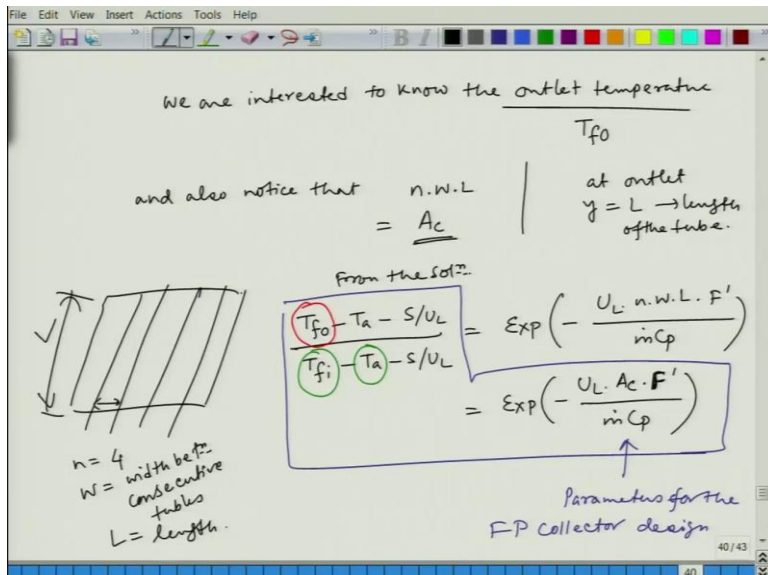 File Edit View Insert Actions Tools Help
We are interested to know the outlet temperature
Tfo
and also notice that n.w.L
= Ac
at outlet
y = L → length
of the tube.
From the solⁿ.
Tfo - Ta - S/UL
Tfi - Ta - S/UL
= Exp(- UL. n.w.L. F' / ṁCp)
= Exp(- UL. Ac. F' / ṁCp)
n = 4
w = width betⁿ
consecutive
tubes
L = length.
Parameters for the
FP collector design
40/43
40